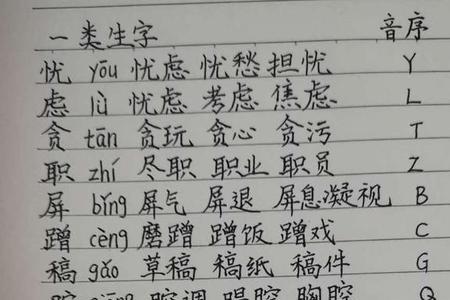 一类生字 音序
忧 yōu 忧虑 忧愁 担忧 Y
虑 lǜ 忧虑 考虑 焦虑 L
贪 tān 贪玩 贪心 贪污 T
职 zhí 尽职 职业 职员 Z
屏 bǐng 屏气 屏退 屏息凝视 B
蹭 cèng 磨蹭 蹭饭 蹭戏 C
稿 gǎo 草稿 稿纸 稿件 G
腔 qiāng 腔调 唱腔 胸腔 Q